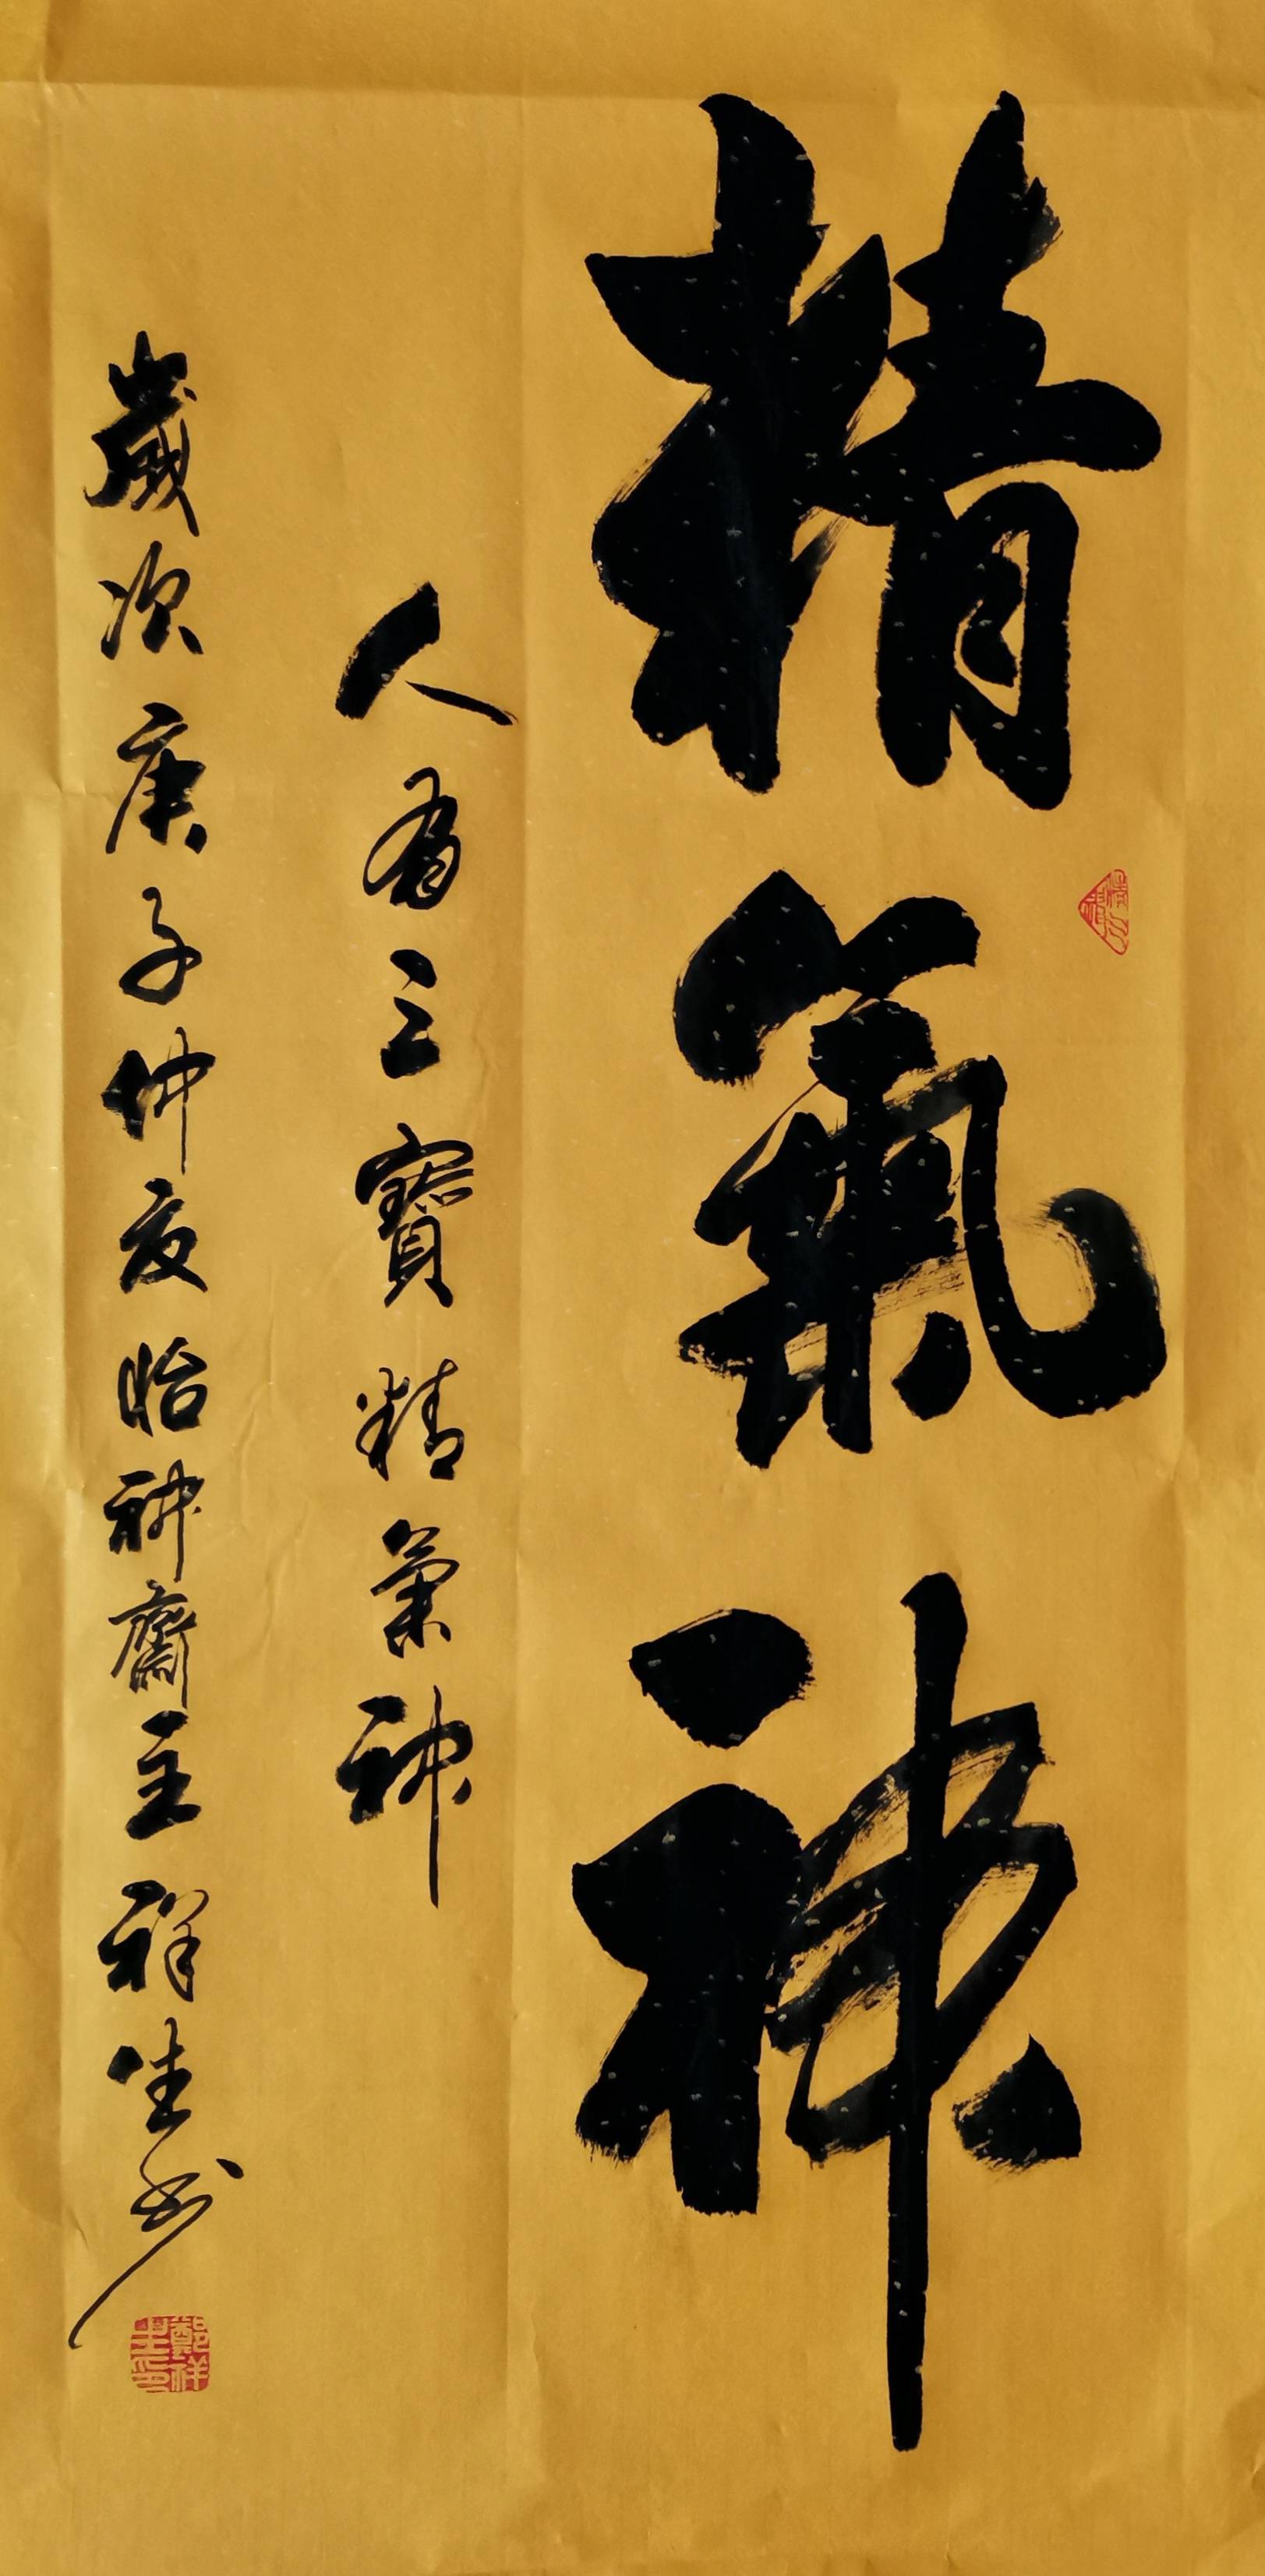 精氣神
人有三寶精氣神
歲次庚子仲夏怡神齋主祥生书
鄭祥生印